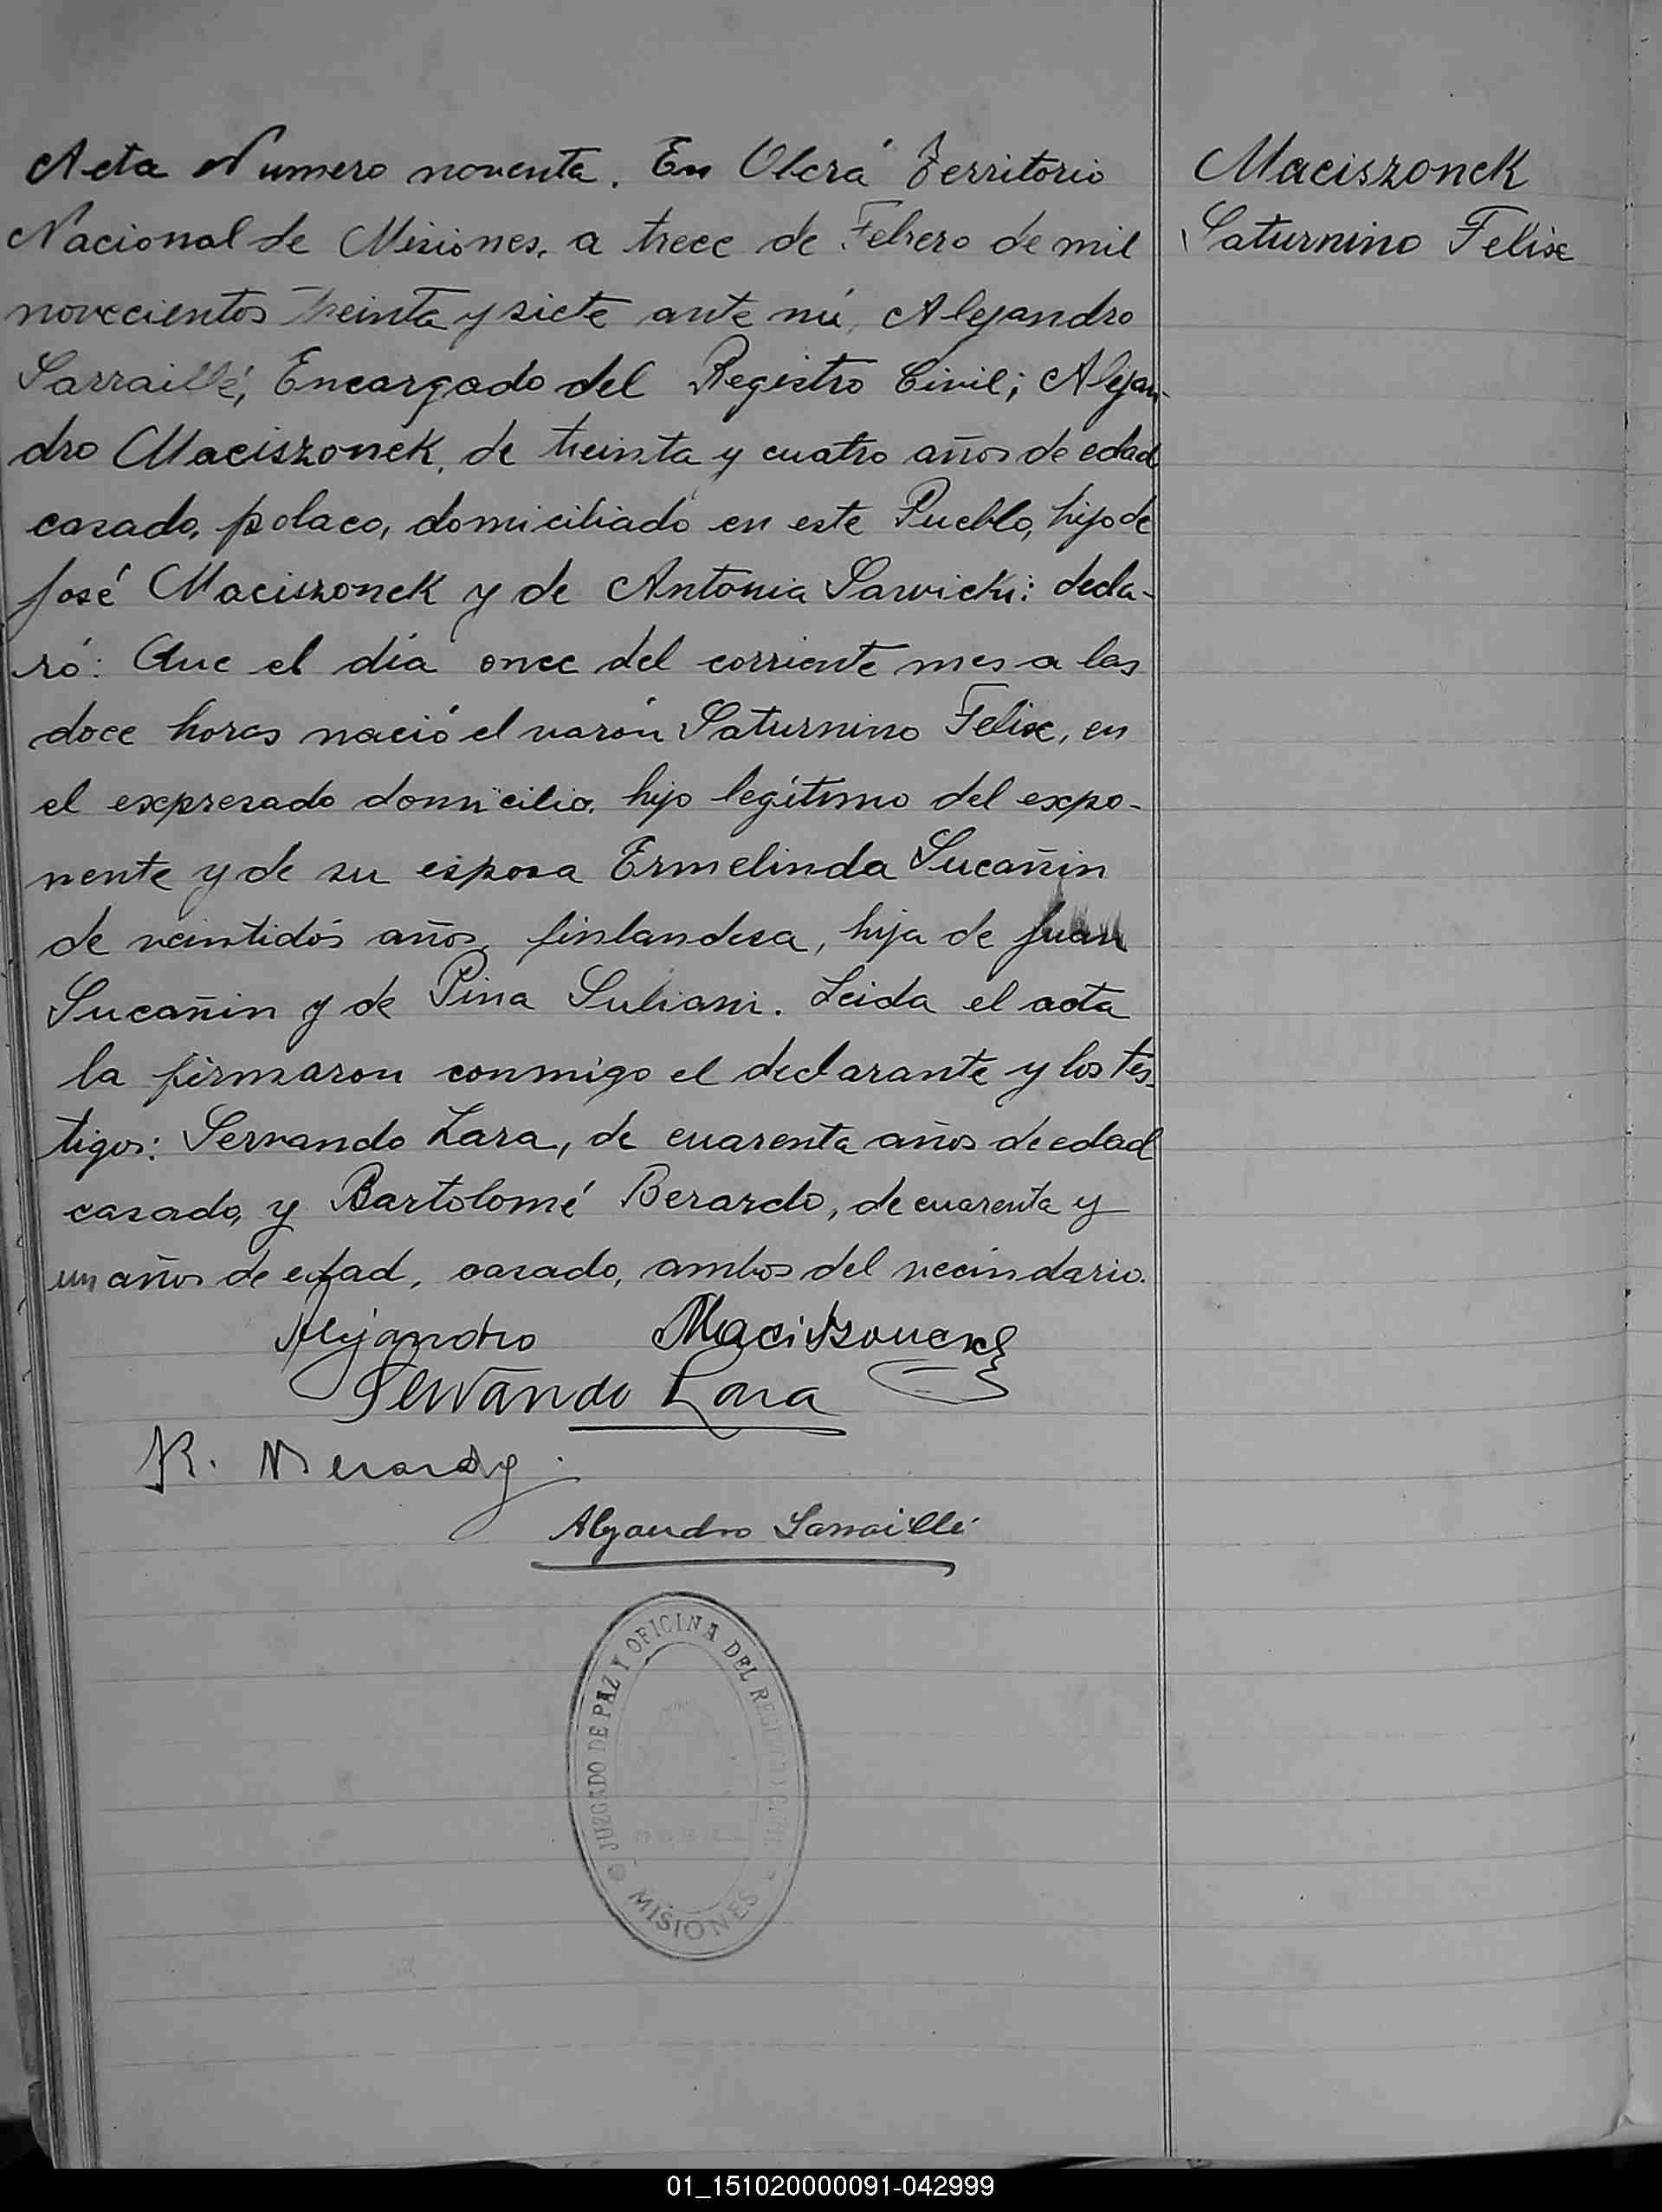 Acta Numero noventa. En Oberá Territorio
Nacional de Misiones, a trece de Febrero de mil
novecientos treinta y siete ante mí, Alejandro
Sarraillé, Encargado del Registro Civil; Alejan-
dro Maciszonek, de treinta y cuatro años de edad
casado, polaco, domiciliado en este Pueblo, hijo de
José Maciszonek y de Antonia Sawicki: decla-
ró: Que el día once del corriente mes a las
doce horas nació el varón Saturnino Felix, en
el expresado domicilio, hijo legítimo del expo-
nente y de su esposa Ermelinda Sucañin
de veintidós años, finlandesa, hija de Juan
Sucañin y de Pina Suliani. Leida el acta
la firmaron conmigo el declarante y los tes-
tigos: Servando Lara, de cuarenta años de edad
casado, y Bartolomé Berardo, de cuarenta y
un años de edad, casado, ambos del vecindario.
Alejandro Maciszonek
Servando Lara
Alejandro Sarraillé
JUZGADO DE PAZ Y OFICINA DEL REGISTRO CIVIL
MISIONES
Maciszonek
Saturnino Felix
01_151020000091-042999